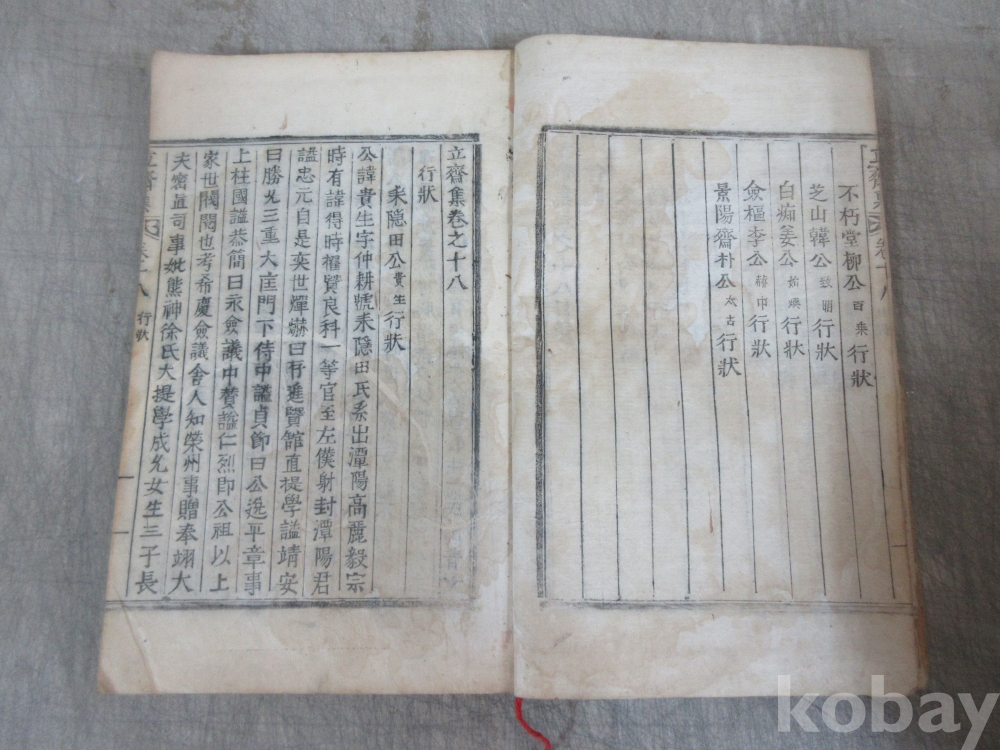 不朽堂柳公百乘行狀
芝山韓公致明行狀
白痴姜公行狀
僉樞李公行狀
景陽齋朴公太古行狀
立齋集卷之十八
行狀
耒隐田公貴生行狀
公諱貴生字仲耕號耒隐田氏系出潭陽高麗毅宗
時有諱得時擢賢良科一等官至左僕射封潭陽君
謚忠元自是奕世燀爀曰進賢館直提學謚靖安
曰勝三重大匡門下侍中謚貞節曰公逸平章事
上柱國謚恭簡曰永僉議中賛謚仁烈即公祖以上
家世閥閱也考希慶僉議舍人知榮州事贈奉翊大
夫密直司事妣熊神徐氏大提學成允女生三子長
行狀
kobay